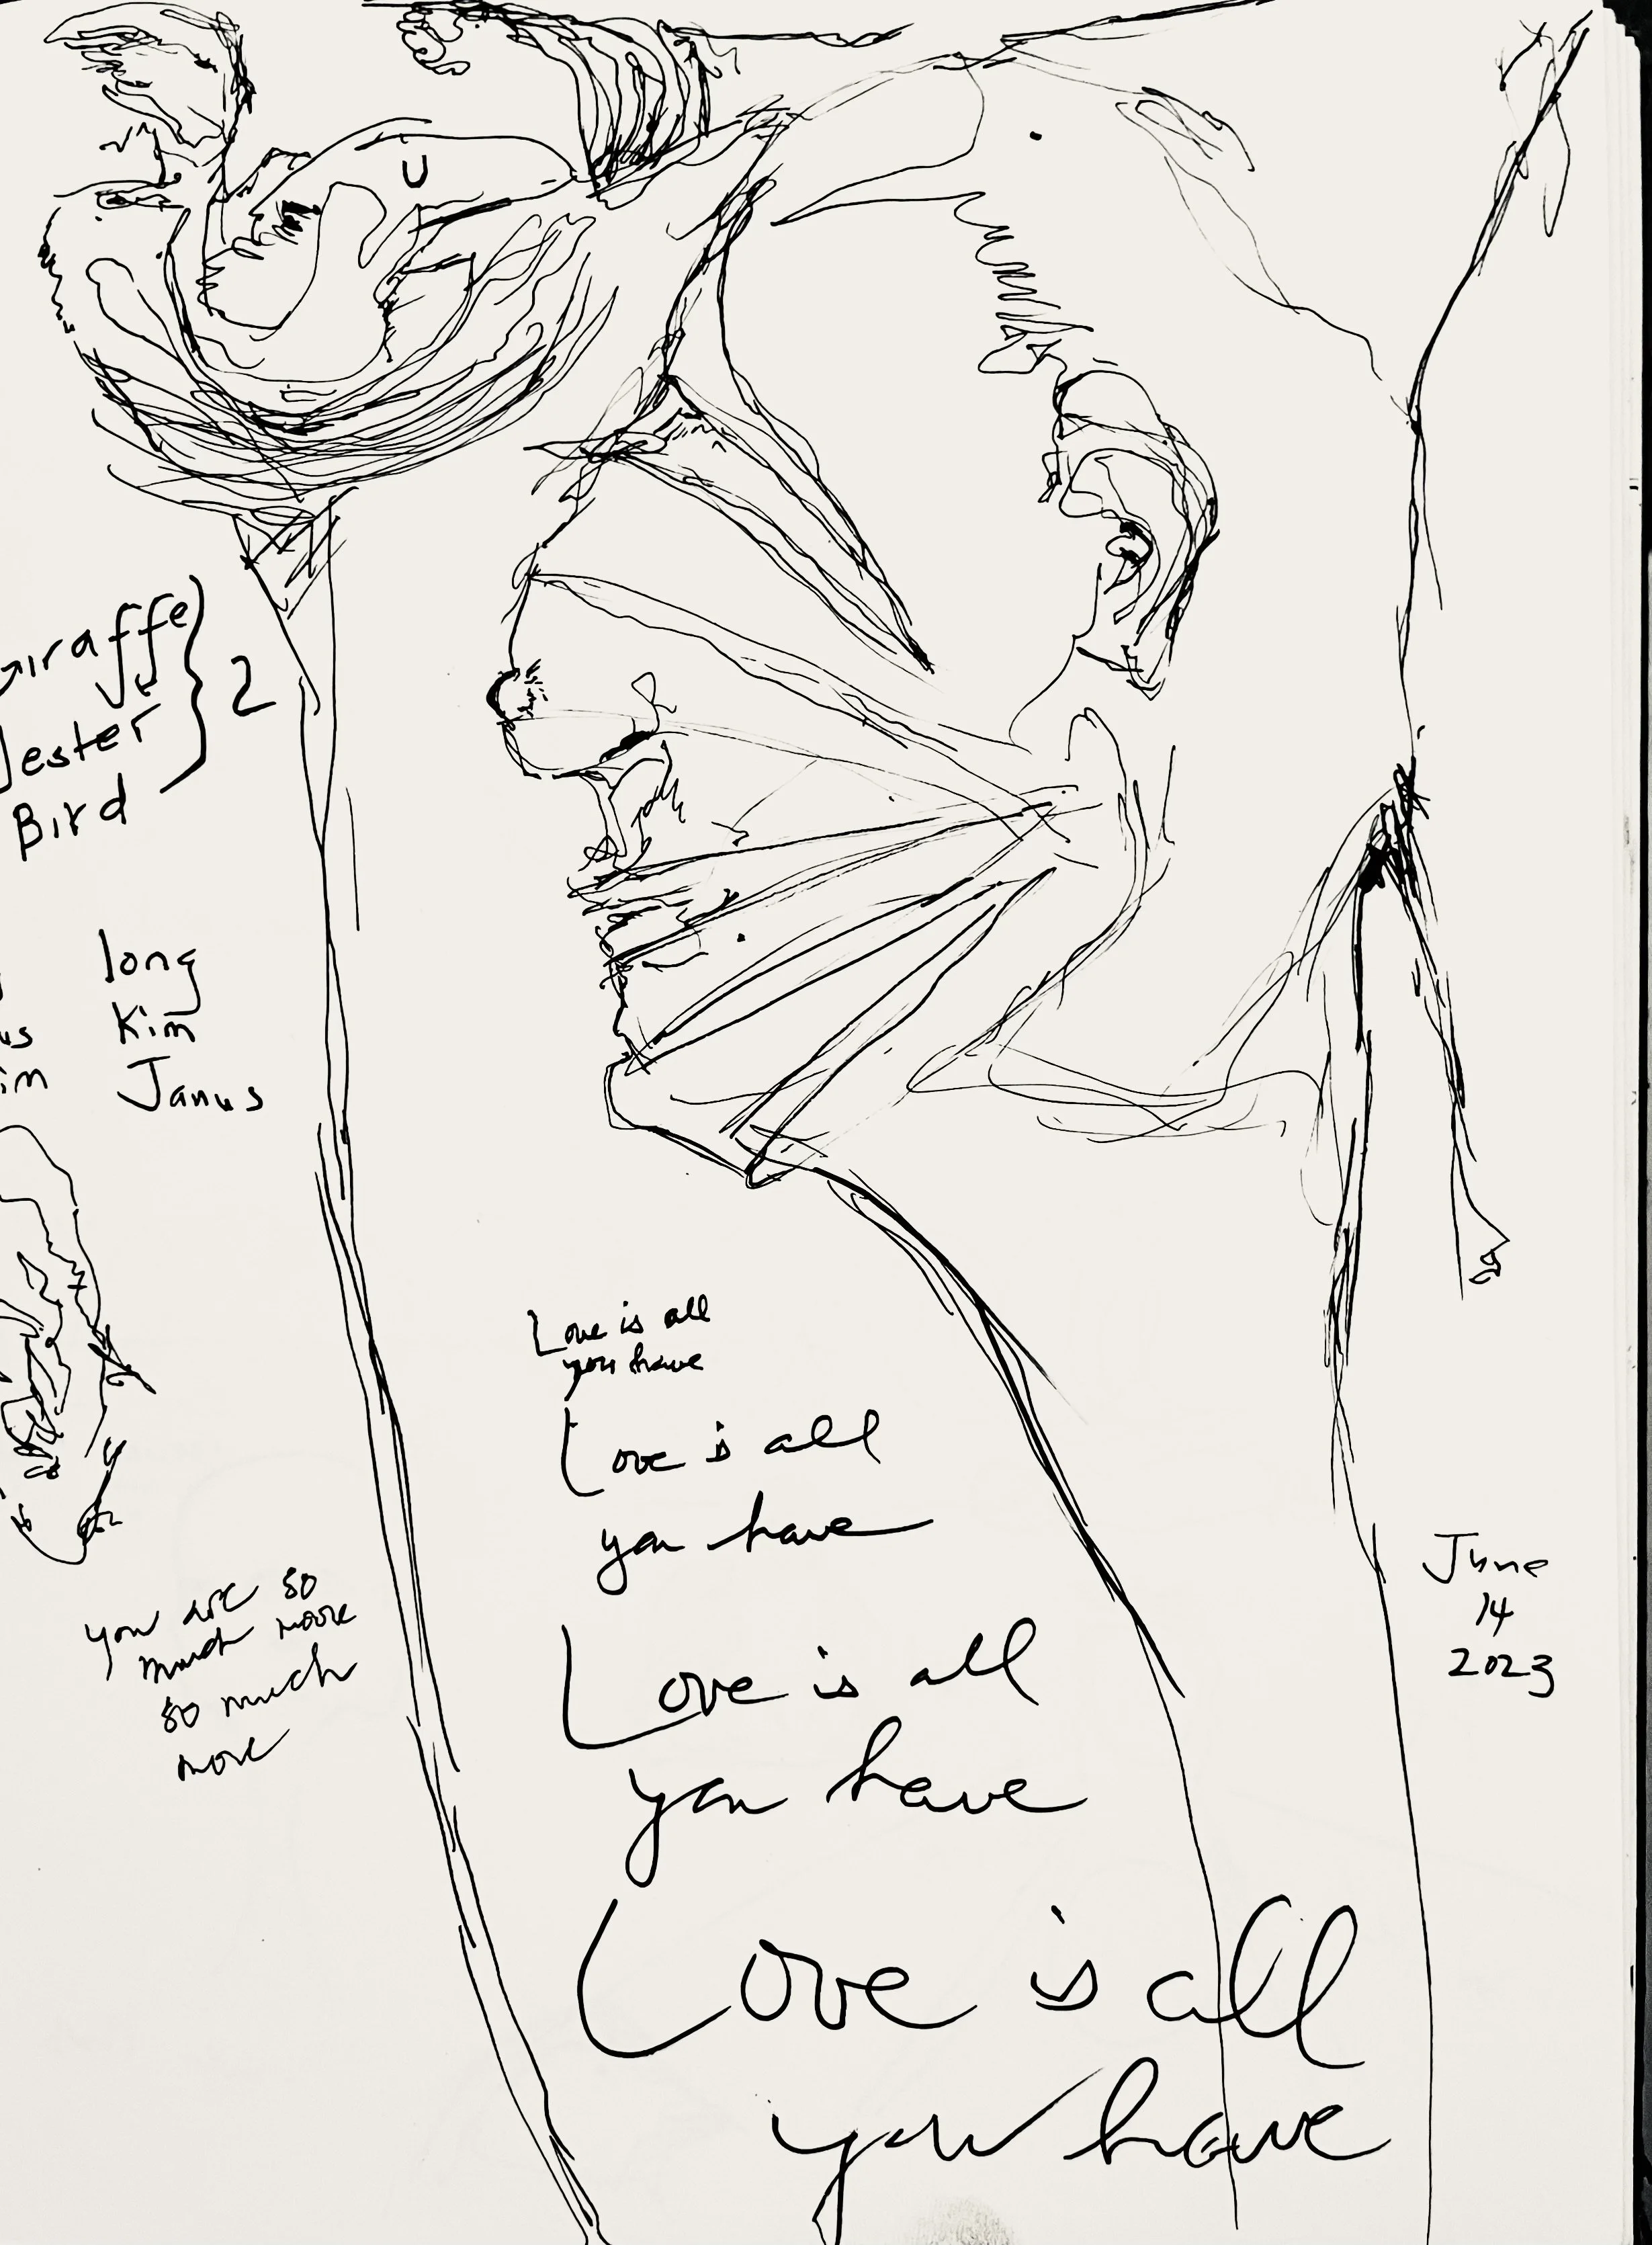 U
Giraffe
Jester
Bird
2
long
Kim
Janus
us
im
Love is all
you have
Love is all
you have
Love is all
you have
Love is all
you have
you are so
much more
so much
more
June
14
2023